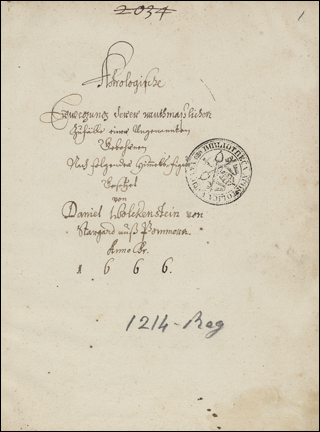 2034
1
Astrologische
Erwegung derer muthmaßlichen
Zufälle einer Ungenannten
Gebohrenen
Nach folgender Himmelsfigur
von
Daniel Wolckenstein von
Stargard auß Pommern.
Anno Chr.
1 6 6 6.
BIBLIOTHECA
1214-Reg